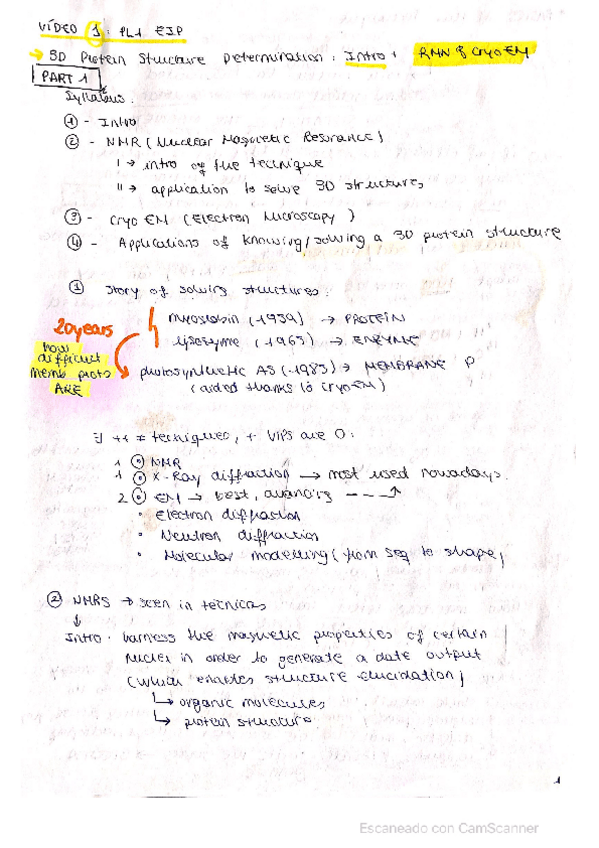 VÍDEO 1: PL1 EIP
→ 3D Protein Structure Determination: Intro + RMN & CryoEM
PART 1
Syllabus:
① - Intro
② - NMR (Nuclear Magnetic Resonance)
I → intro of the tecnique
II → application to solve 3D structures
③ - Cryo EM (Electron Microscopy)
④ - Applications of knowing/solving a 3D protein structure
① Story of solving structures:
myoglobin (1959) → PROTEIN
lysozyme (1965) → ENZYME
20 years
how difficult memb prots ARE
photosynthetic AS (1985) → MEMBRANE P
(aided thanks to CryoEM)
∃ ++ ≠ tecniques, + VIPS are O:
1 NMR
1 X-Ray diffraction → most used nowadays.
2 EM → best,
• Electron diffraction
• Neutron diffraction
• Molecular modelling (from seq to shape)
② NMRS → seen in tecnicas
↓
Intro. harness the magnetic properties of certain
nuclei in order to generate a date output
(which enables structure elucidation)
↳ organic molecules
↳ protein structure
1
Escaneado con CamScanner